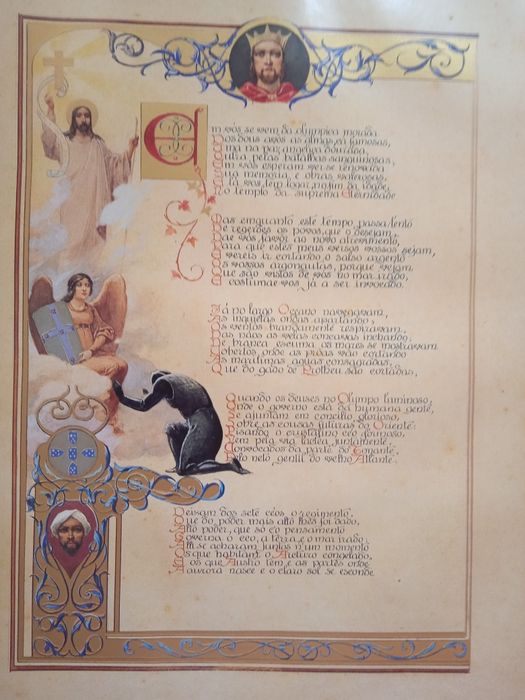 Em vós se vem da olympica morada
Dos dous avós as almas cá famosas,
Uma na paz angelica dourada,
Outra pelas batalhas sanguinosas;
Em vós esperam ver-se renovada
Sua memoria, e obras valerosas;
E lá vos tem logar, no fim da idade,
No templo da suprema Eternidade
Mas emquanto este tempo passa lento
De regerdes os povos, que o desejam,
Dae vós favor ao novo atrevimento,
Para que estes meus versos vossos sejam,
E vereis ir cortando o salso argento
Os vossos argonautas, porque vejam
Que são vistos de vós no mar irado,
E costumae-vos já a ser invocado.
Já no largo Oceano navegavam,
As inquietas ondas apartando,
Os ventos brandamente respiravam,
Das naos as velas concavas inchando;
Da branca escuma os mares se mostravam
Cobertos, onde as proas vão cortando
As maritimas aguas consagradas,
Que do gado de Protheu são cortadas,
Quando os deuses no Olympo luminoso,
Onde o governo está da humana gente,
Se ajuntam em concilio glorioso,
Sobre as cousas futuras do Oriente:
Pisando o crystallino céo formoso,
Vem pela via lactea juntamente,
Convocados da parte do Tonante,
Pelo neto gentil do velho Atlante.
Deixam dos sete céos o regimento,
Que do poder mais alto lhes foi dado,
Alto poder, que só co'o pensamento
Governa o céo, a terra, e o mar irado:
Alli se acharam juntos n'um momento
Os que habitam o Arcturo congelado,
E os que o Austro tem e as partes onde
A aurora nasce e o claro sol se esconde